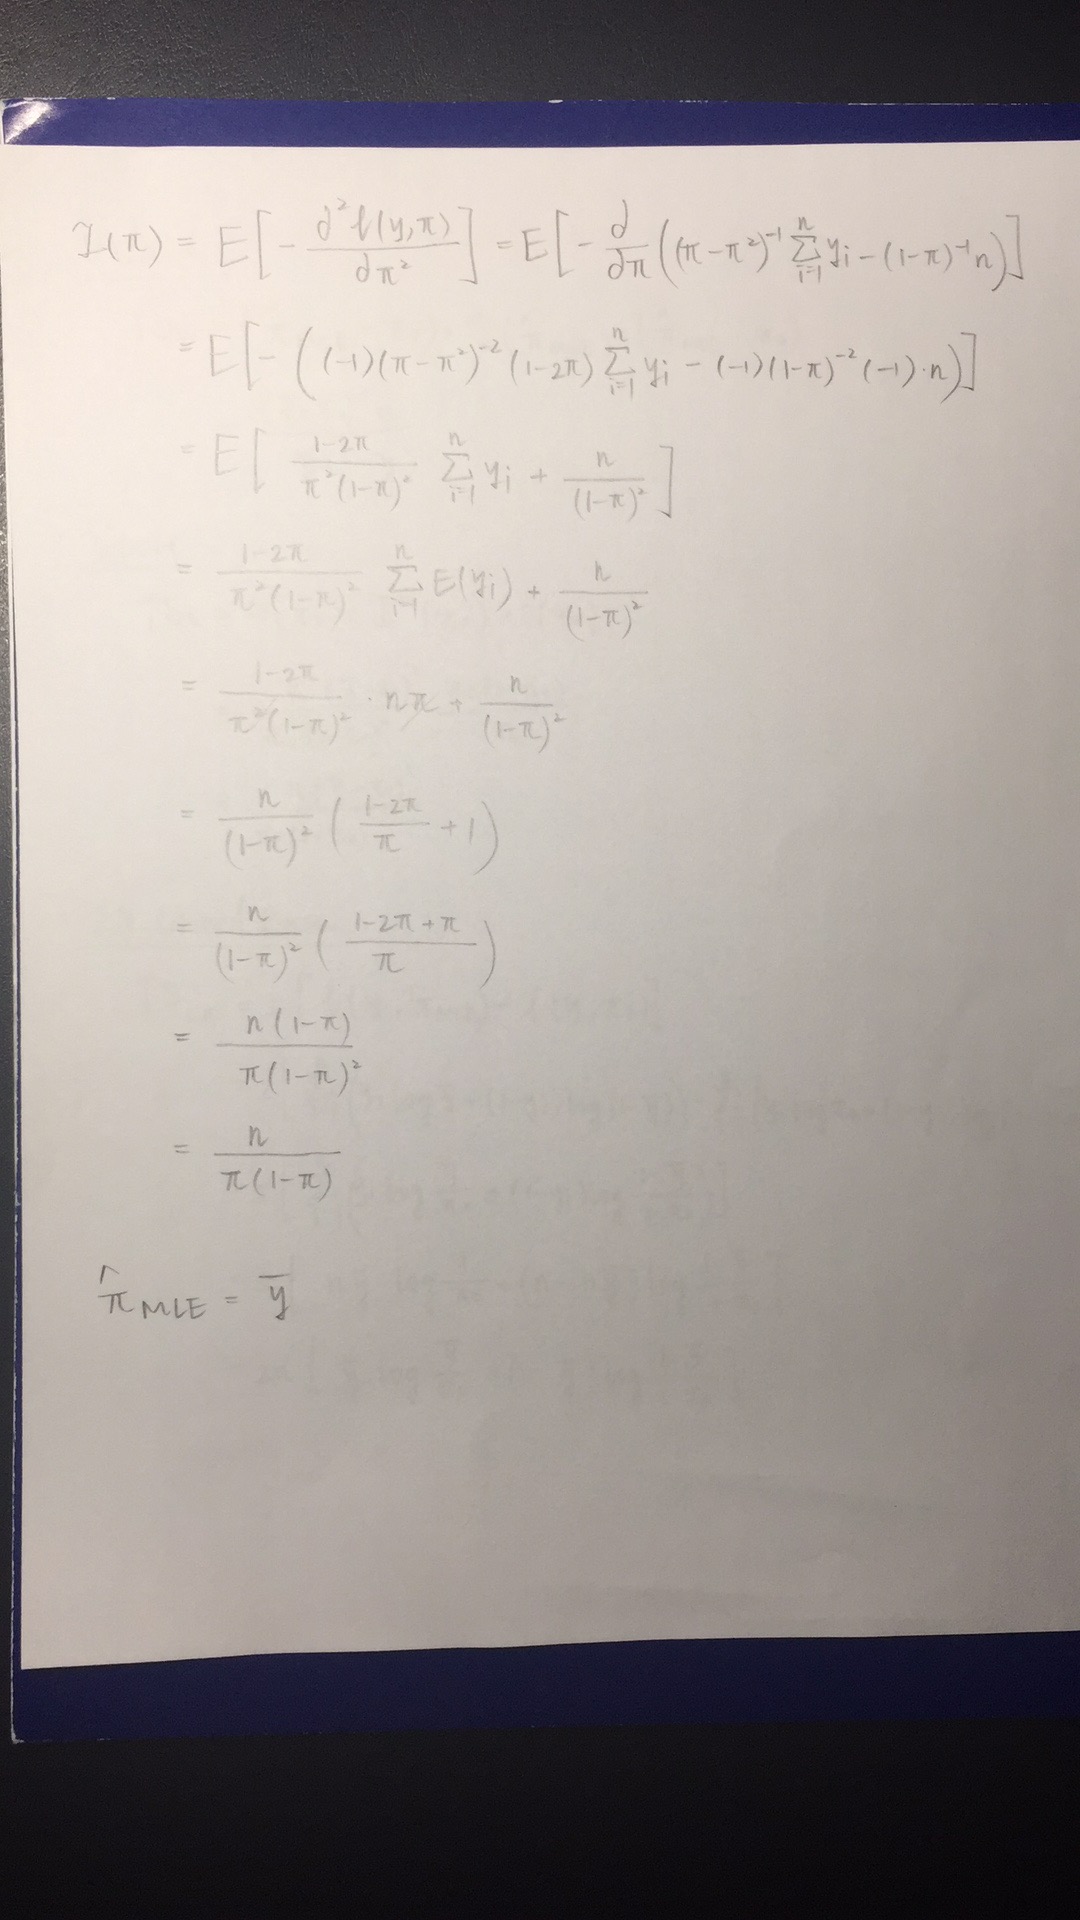 I(π) = E[ - ∂²ℓ(y,π)/∂π² ] = E[ - ∂/∂π ( (π-π²)⁻¹ Σᵢ₌₁ⁿ yᵢ - (1-π)⁻¹ n ) ]
= E[ - ( (-1)(π-π²)⁻² (1-2π) Σᵢ₌₁ⁿ yᵢ - (-1)(1-π)⁻² (-1)·n ) ]
= E[ (1-2π)/(π²(1-π)²) Σᵢ₌₁ⁿ yᵢ + n/(1-π)² ]
= (1-2π)/(π²(1-π)²) Σᵢ₌₁ⁿ E(yᵢ) + n/(1-π)²
= (1-2π)/(π²(1-π)²) · nπ + n/(1-π)²
= n/(1-π)² ( (1-2π)/π + 1 )
= n/(1-π)² ( (1-2π+π)/π )
= n(1-π)/(π(1-π)²)
= n/(π(1-π))
π̂ MLE = ȳ